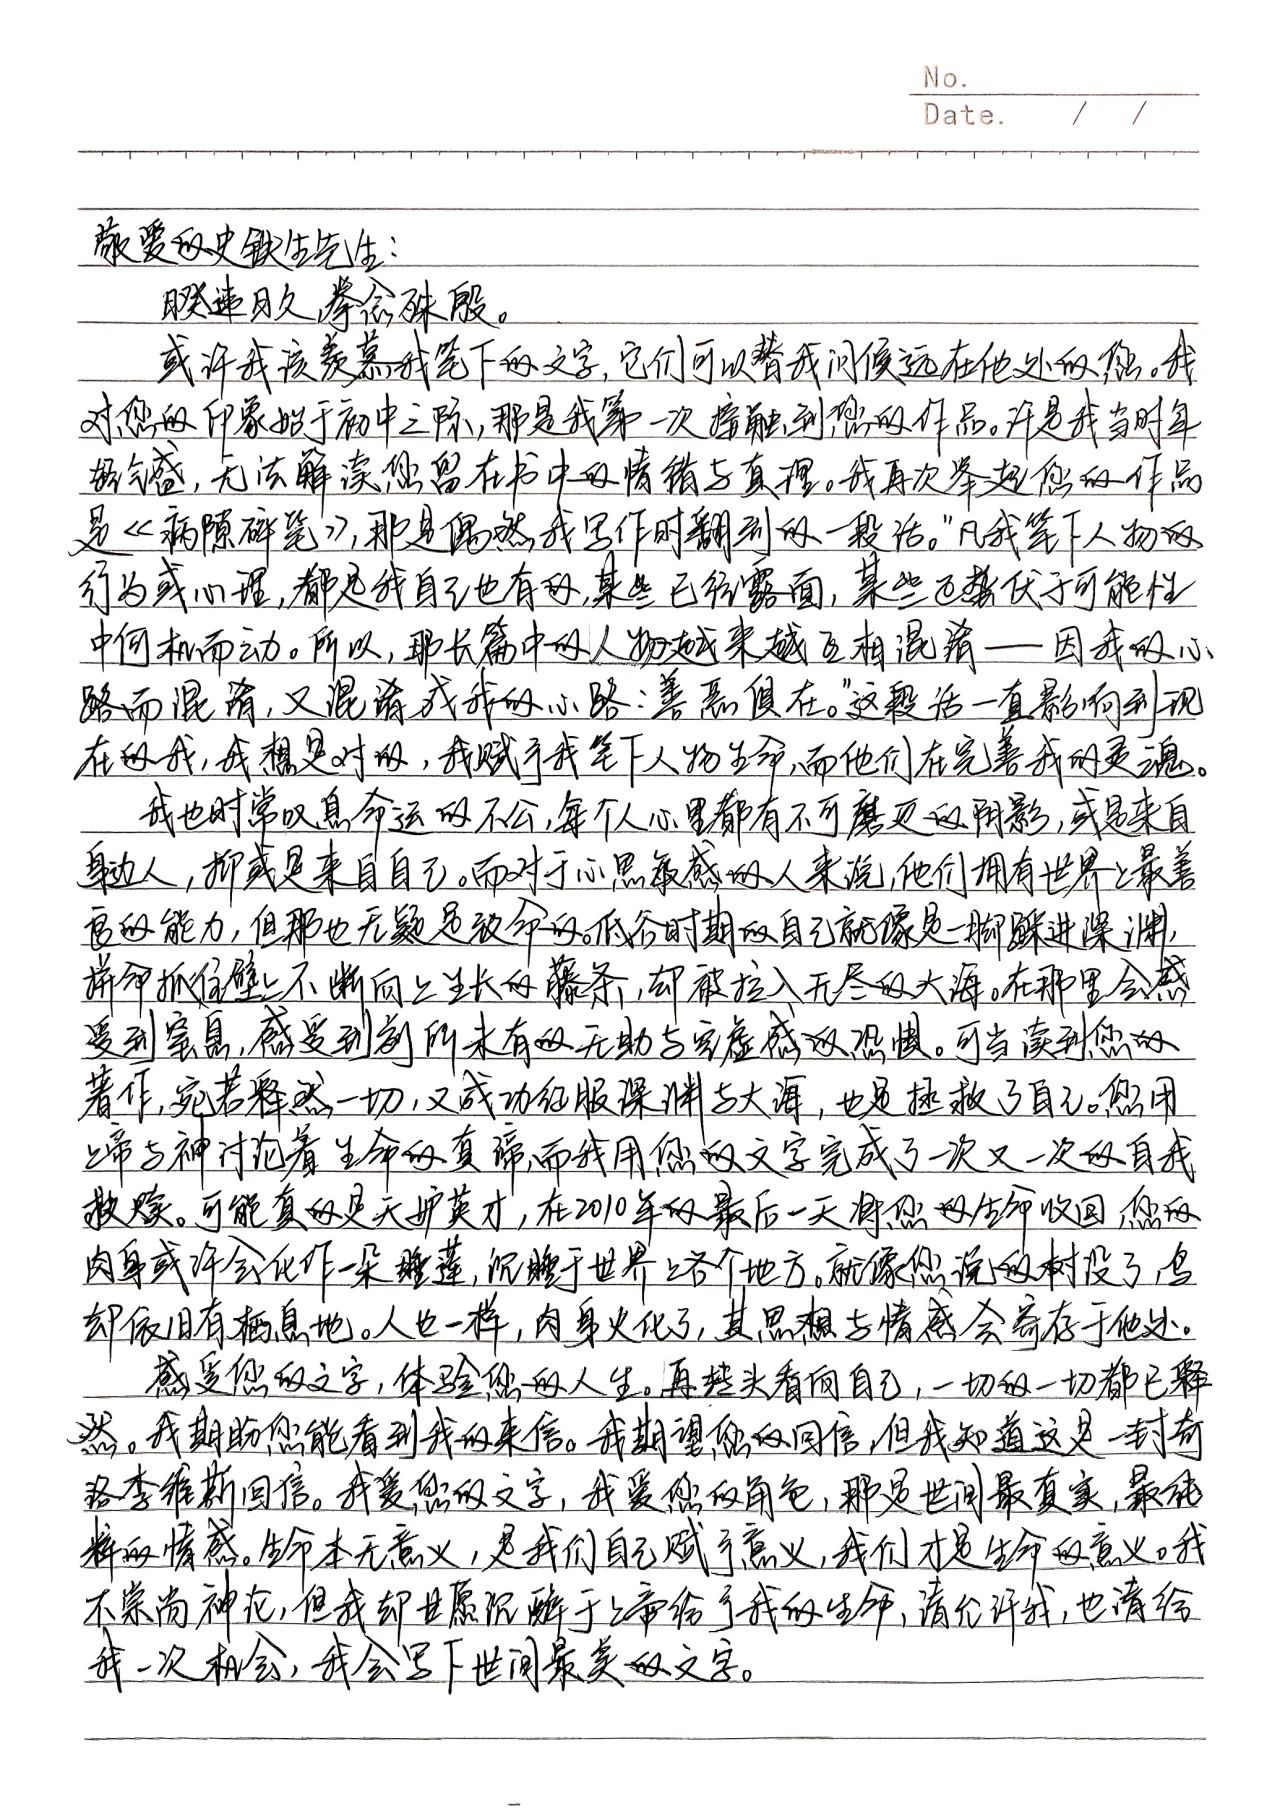 No.
Date.    /    /
敬爱的史铁生先生：
暌违日久，拳念殊殷。
或许我该羡慕我笔下的文字，它们可以替我问候远在他处的您。我
对您的印象始于初中之际，那是我第一次接触到您的作品。许是我当时年
龄尚小，无法解读您留在书中的情绪与真理。我再次举起您的作品
是《病隙碎笔》，那是偶然我写作时翻到的一段话。"凡我笔下人物的
行为或心理，都是我自己也有的，某些已经露面，某些已蛰伏于可能性
中伺机而动。所以，那长篇中的人物越来越互相混淆——因我的心
路而混淆，又混淆成我的心路：善恶俱在。"这段话一直影响到现
在的我，我想是对的，我赋予我笔下人物生命，而他们在完善我的灵魂。
我也时常叹息命运的不公，每个人心里都有不可磨灭的阴影，或是来自
身边人，抑或是来自自己。而对于心思敏感的人来说，他们拥有世界上最善
良的能力，但那也无疑是致命的。低谷时期的自己就像是一脚踩进深渊，
拼命抓住壁上不断向上生长的藤条，却被拉入无尽的大海。在那里会感
受到窒息，感受到前所未有的无助与空虚感的恐惧。可当读到您的
著作，宛若释然一切，又成功征服深渊与大海，也是拯救了自己。您用
上帝与神讨论着生命的真谛，而我用您的文字完成了一次又一次的自我
救赎。可能真的是天妒英才，在2010年的最后一天将您的生命收回，您的
肉身或许会化作一朵睡莲，沉睡于世界上各个地方。就像您说的树没了，鸟
却依旧有栖息地。人也一样，肉身火化了，其思想与情感会寄存于他处。
感受您的文字，体验您的人生。再掉头看向自己，一切的一切都已释
然。我期盼您能看到我的来信。我期望您的回信，但我知道这是一封奇
洛李维斯回信。我爱您的文字，我爱您的角色，那是世间最真实，最纯
粹的情感。生命本无意义，是我们自己赋予意义，我们才是生命的意义。我
不崇尚神论，但我却甘愿沉醉于上帝给予我的生命，请允许我，也请给
我一次机会，我会写下世间最美的文字。